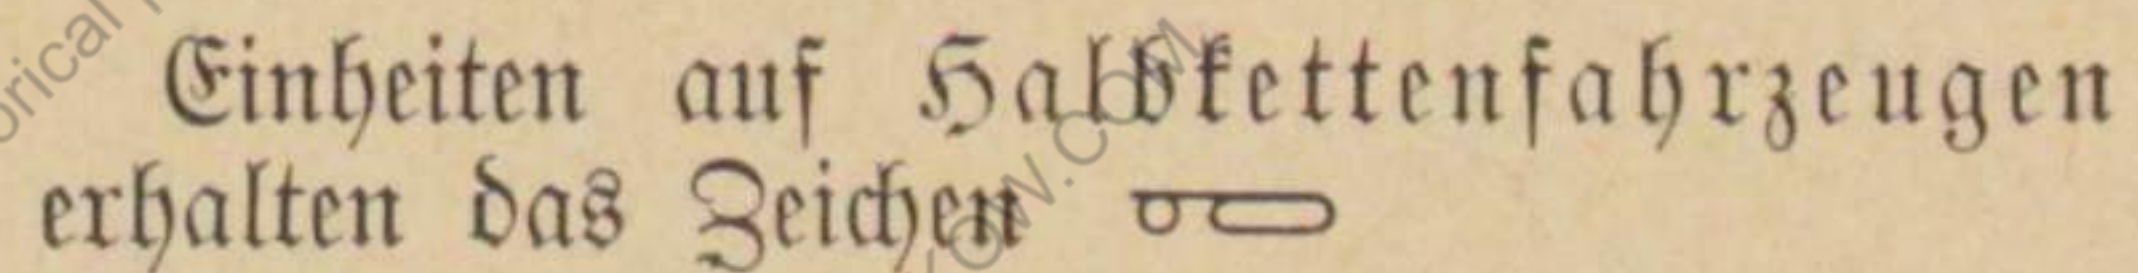 Einheiten auf Halbkettenfahrzeugen
erhalten das Zeichen